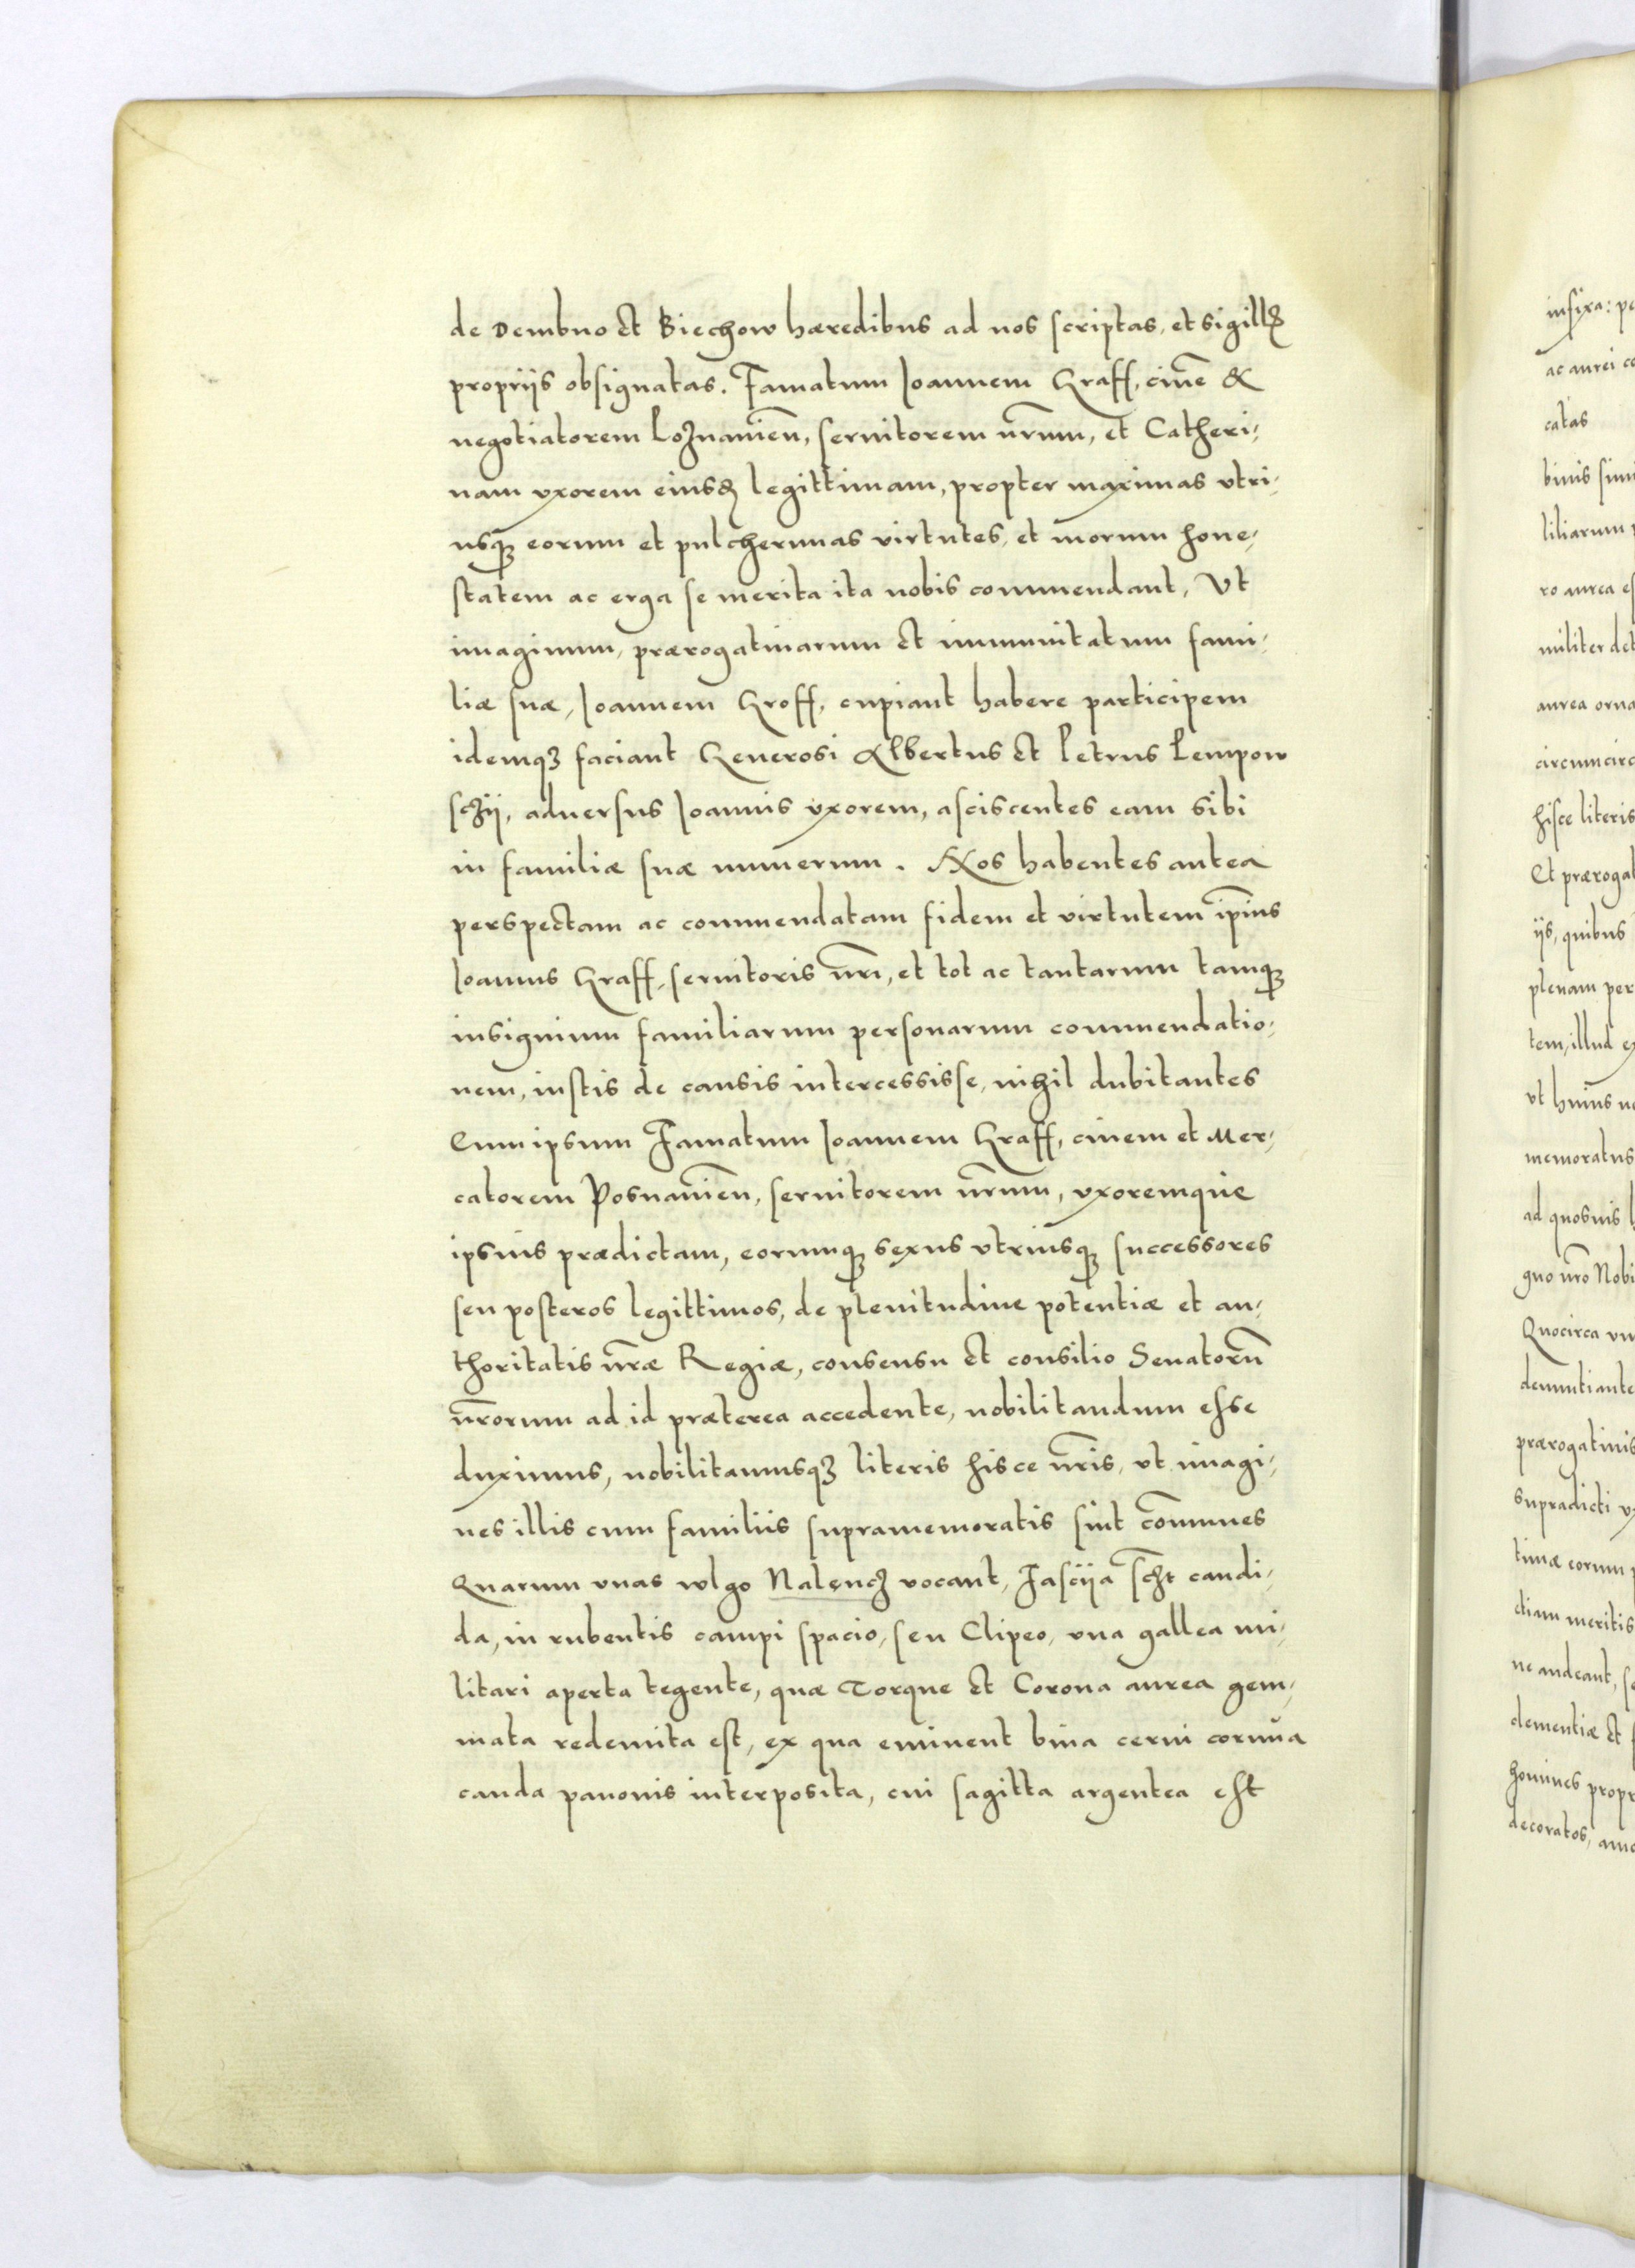 de Dembno et Biechow hæredibus ad nos scriptas, et sigillꝭ
propriis obsignatas. Famatum Joannem Graff, civẽ &
negotiatorem Poznanieñ, servitorem nr̃um, et Catheri-
nam uxorem eiusdꝫ legittimam, propter maximas utri-
usqꝫ eorum et pulcherimas virtutes, et morum hone-
statem ac erga se merita ita nobis commendant, Ut
imaginum, prærogativarum et immunitatum fami-
liæ suæ, Joannem Groff, cupiant habere participem
idemqꝫ faciant Generosi Albertus et Petrus Pempow
schii, adversus Joannis uxorem, asciscentes eam sibi
in familiæ suæ numerum. Nos habentes antea
perspectam ac commendatam fidem et virtutem ip̃ius
Joannis Graff, servitoris nr̃i, et tot ac tantarum tamqꝫ
insignium familiarum personarum commendatio-
nem, iustis de causis intercessisse, nihil dubitantes
Eum ipsum Famatum Joannem Graff, civem et Mer-
catorem Posnanieñ, servitorem nr̃um, uxoremque
ipsius prædictam, eorumqꝫ sexus utriusqꝫ successores
seu posteros legittimos, de plenitudine potentiæ et au-
thoritatis nr̃æ Regiæ, consensu et consilio Senatorũ
nr̃orum ad id præterea accedente, nobilitandum esse
duximus, nobilitamusqꝫ literis hisce nr̃is, ut imagi-
nes illis cum familiis supramemoratis sint com̃unes
Quarum unas vulgo Nalęncz vocant, Fasciia sc̃ꝫt candi-
da, in rubentis campi spacio, seu Clipeo, una gallea mi-
litari aperta tegente, quæ Torque et Corona aurea gem-
mata redemita est, ex qua eminent bina cervi cornua
cauda pavonis interposita, cui sagitta argentea est
infixa: pe
ac aurei co
catas
binis simi
liliarum
ro aurea es
militer det
aurea orna
circumcirc
hisce literis
Et prærogat
iis, quibus
plenam per
tem, illud ex
ut huius
memoratus
ad quosvis
gno nr̃o Nobi
Quocirca un
denuntiante
prærogativis
supradicti ux
timæ eorum
ctiam meritis
ne audeant, s
clementiæ et
homines propr
decoratos,